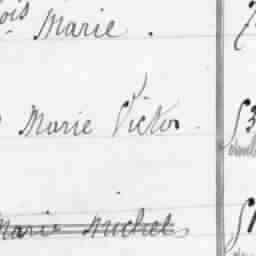 ois Marie .
Marie Victor
Marie Michel